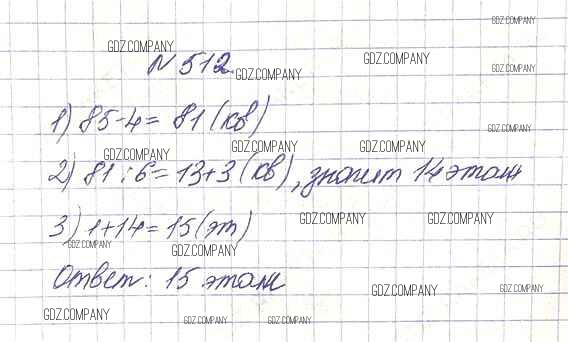 GDZ.COMPANY
GDZ.COMPANY
№ 512
GDZ.COMPANY
GDZ.COMPANY
GDZ.COMPANY
1) 85-4= 81 (кв)
GDZ.COMPANY
GDZ.COMPANY
GDZ.COMPANY
GDZ.COMPANY
2) 81:6=13+3 (кв), значит 14 этаж
GDZ.COMPANY
GDZ.COMPANY
3) 1+14=15(эт)
GDZ.COMPANY
GDZ.COMPANY
Ответ: 15 этаж
GDZ.COMPANY
GDZ.COMPANY
GDZ.COMPANY
GDZ.COMPANY
GDZ.COMPANY